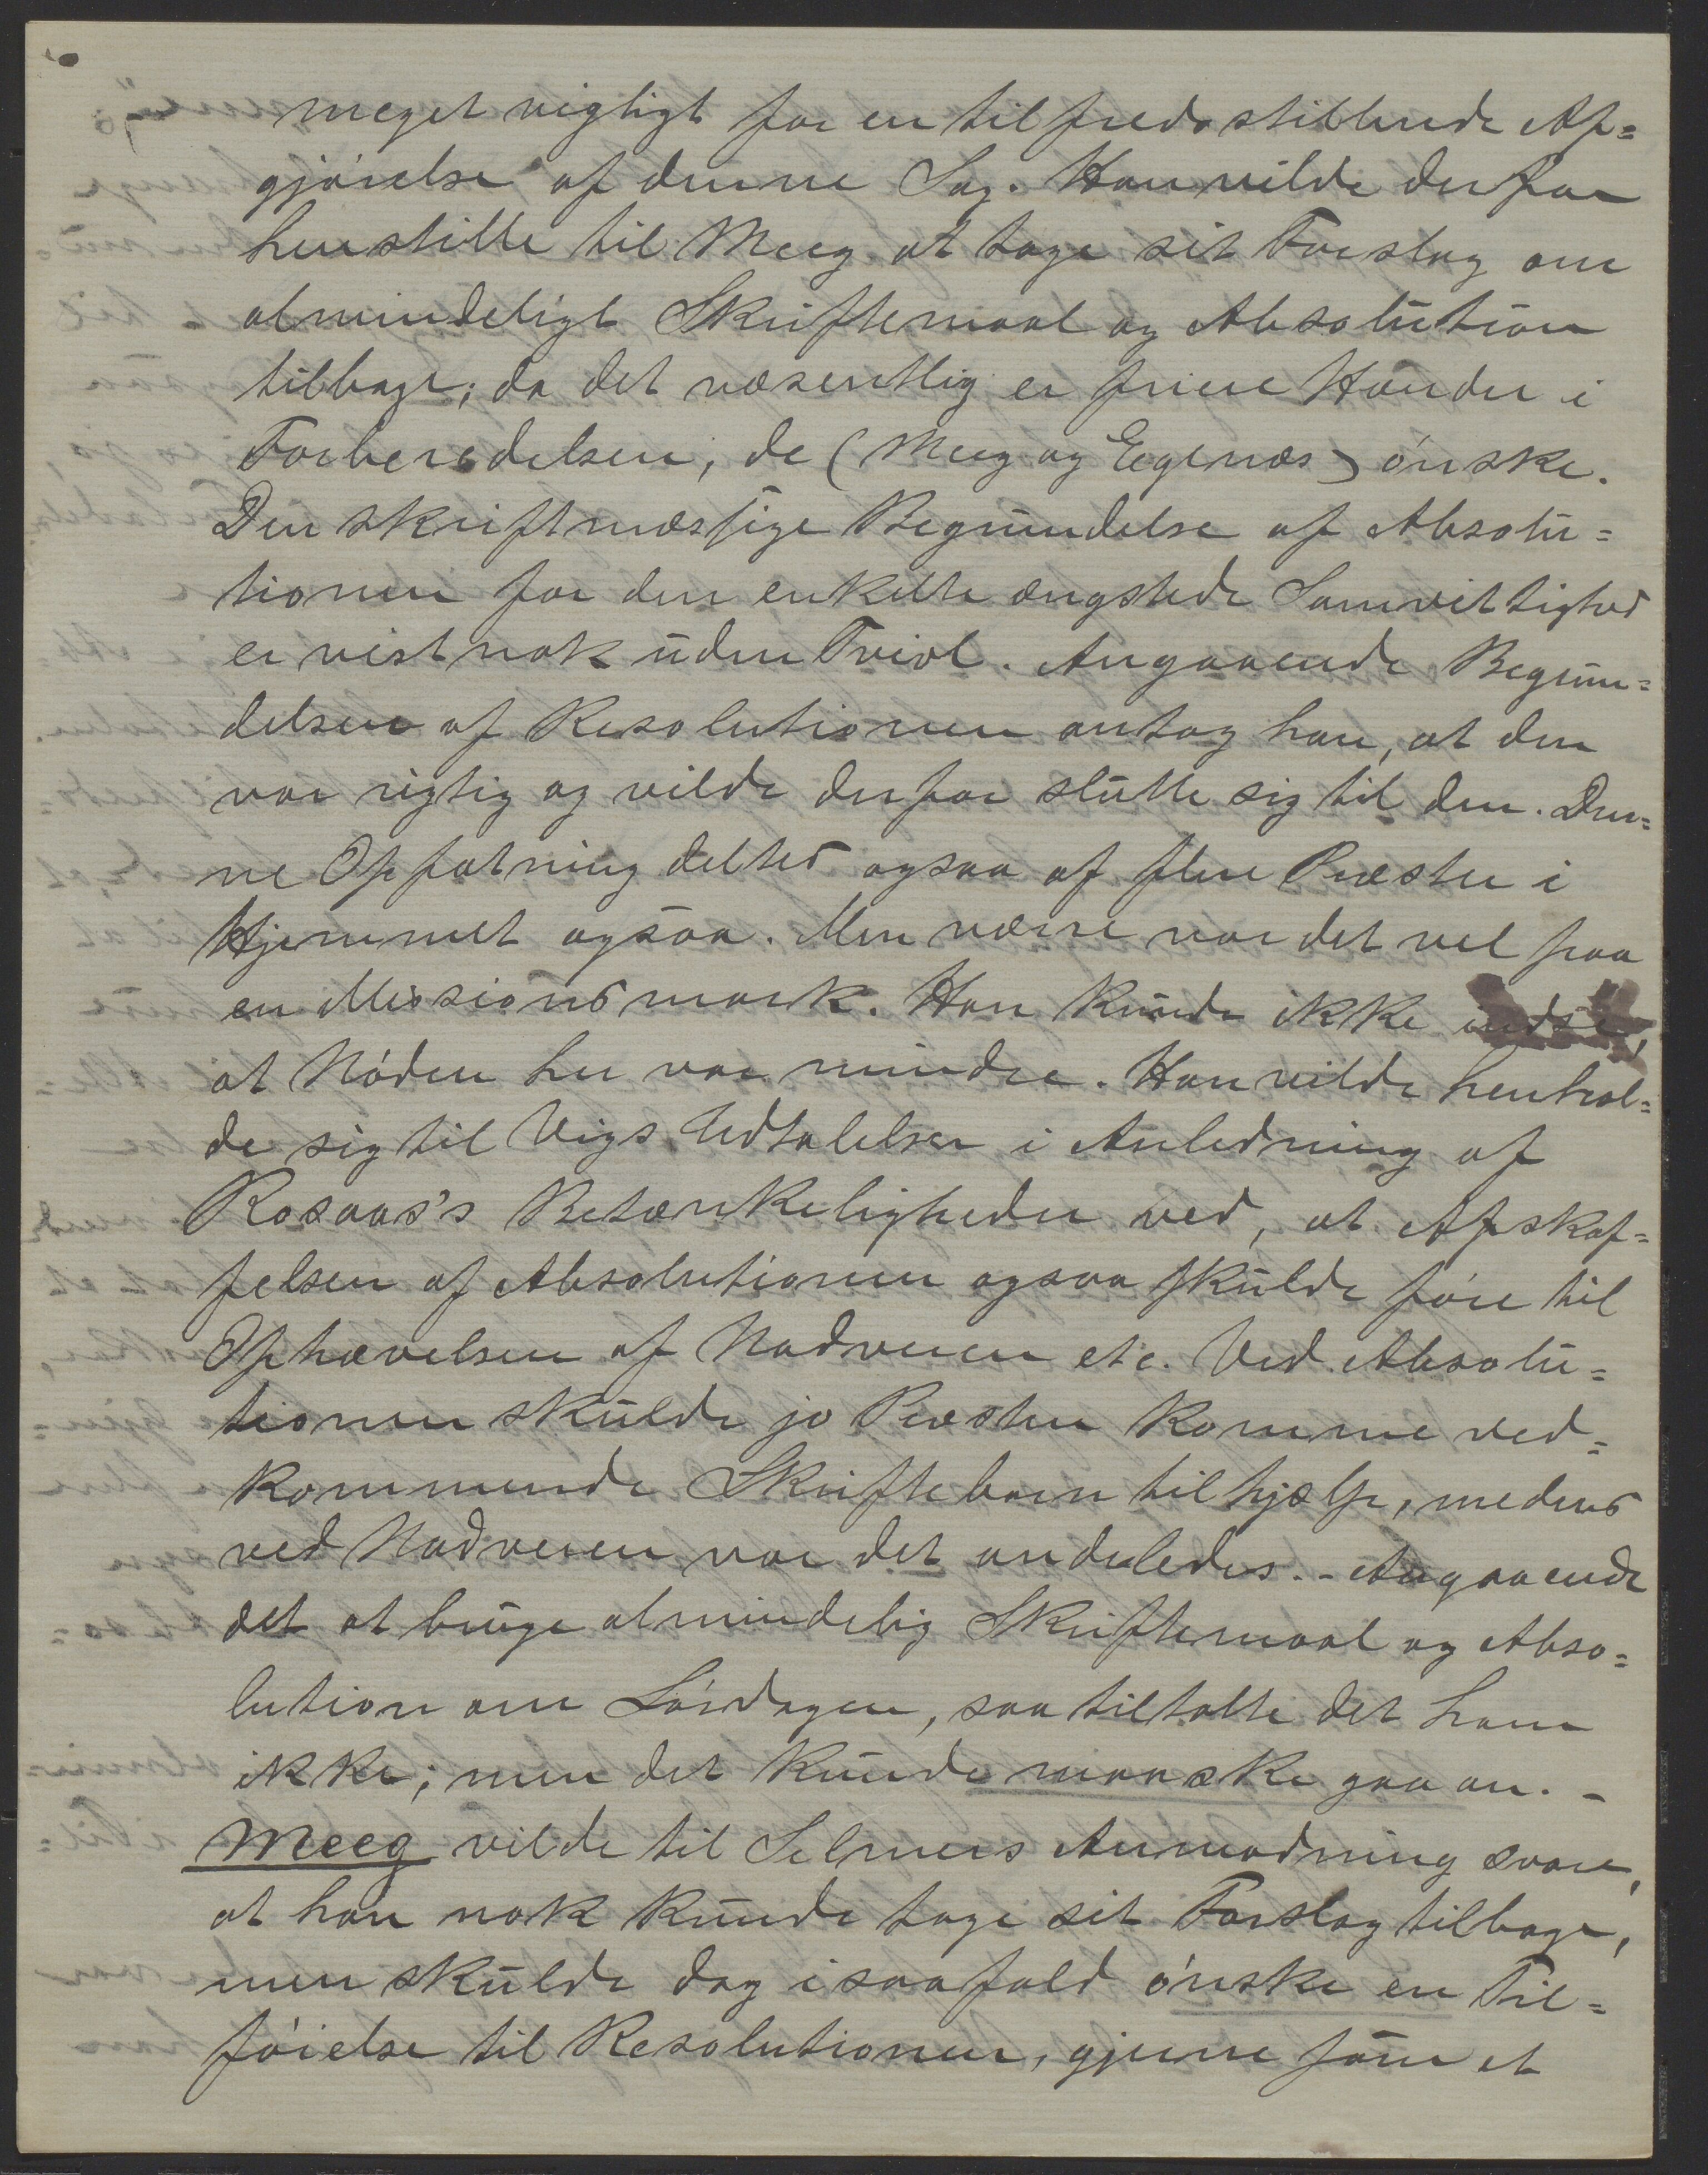 meget vigtigt for en tilfredsstillende Af=
gjórelse af denne Sag. Han vilde derfor
henstille til Meeg at tage sit Forslag om
almindeligt Skriftemaal og Absolution
tilbage; da det væsentlig er friere Hænder i
Forberedelsen, de (Meeg og Egenæs) ónske.
Den skriftmæssige Begrundelse af Absolu=
tionen for den enkelte ængstede Samvittighed
er vistnok uden Tvivl. Angaaende Begrun=
delsen af Resolutionen antog han, at den
var rigtig og vilde derfor slutte sig til den. Den=
ne Opfatning deltes ogsaa af flere Præster i
Hjemmet ogsaa. Men værre var det vel paa
en Missionsmark. Han kunde ikke indse,
at Nóden her var mindre. Han vilde henhol=
de sig til Vigs Udtalelser i Anledning af
Rosaas's Betænkeligheder ved, at Afskaf=
felsen af Absolutionen ogsaa skulde fóre til
Ophævelsen af Nadveren etc. Ved Absolu=
tionen skulde jo Præsten komme ved=
kommende Skriftebarn til hjælp, medens
ved Nadveren var det anderledes. - Angaaende
det at bruge almindelig Skriftemaal og Abso=
lution om Lórdagen, saa tiltalte det ham
ikke; men det kunde maaske gaa an. -
Meeg vilde til Selmers Anmodning svare,
at han nok kunde tage sit Forslag tilbage,
men skulde dog isaafald ónske en Til=
fóielse til Resolutionen, gjerne som et